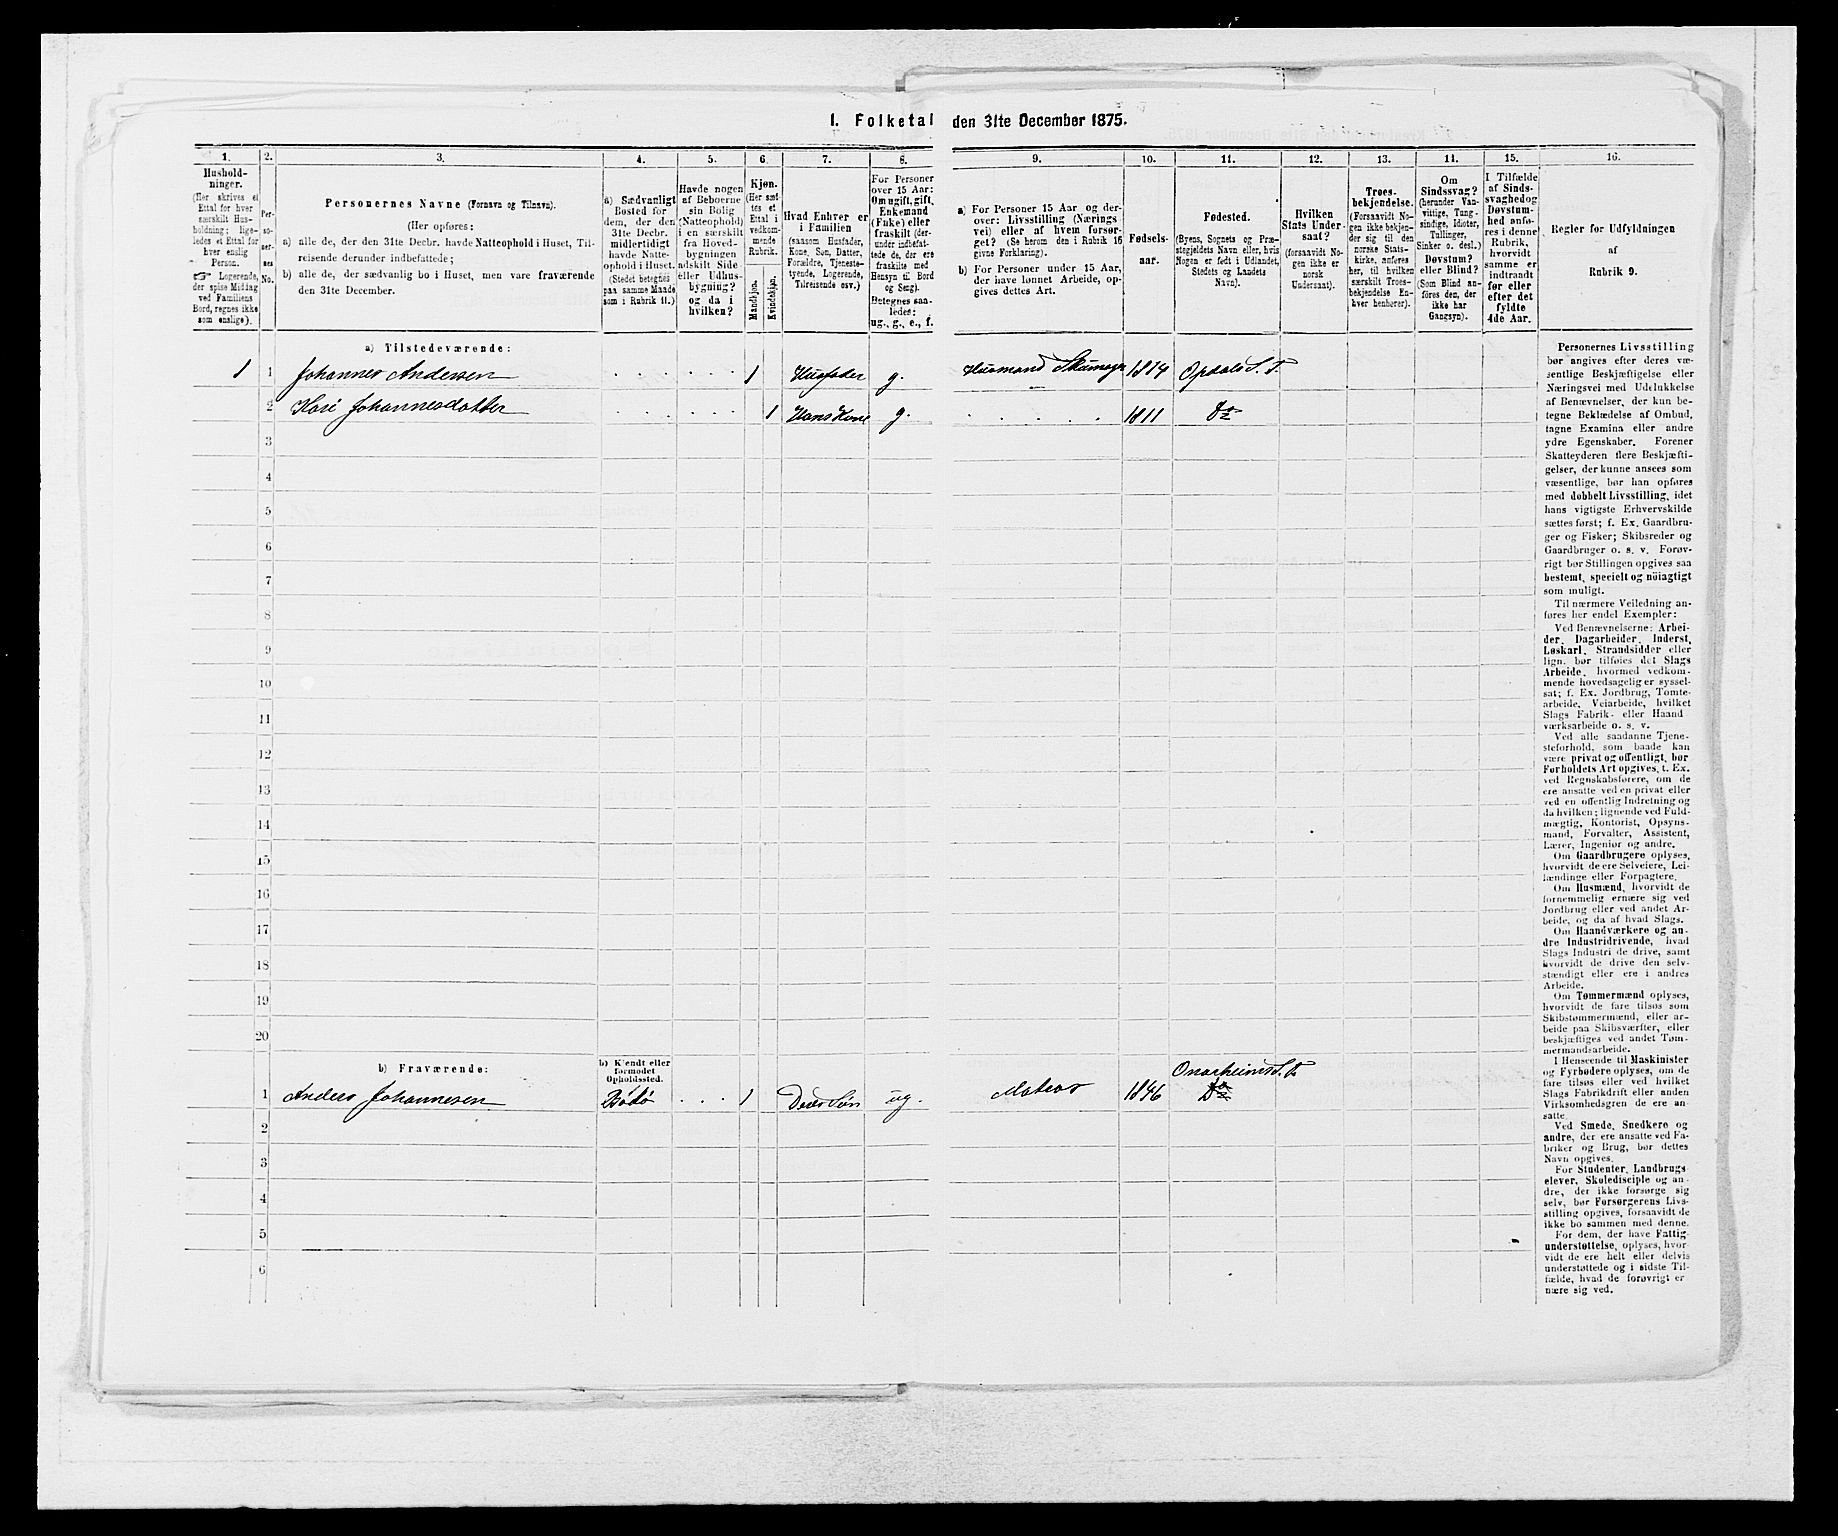 1. Folketal den 31te December 1875.
1. 2. 3. 4. 5. 6. 7. 8. 9. 10. 11. 12. 13. 14. 15. 16.
Hushold-
ninger.
(Her skrives et
Ettal for hver
særskilt Hus-
holdning; lige-
ledes et Ettal for
hver enslig
Person.
☞ Logerende,
der spise Middag
ved Familiens
Bord, regnes ikke
som enslige).
Per-
so-
ner-
nes
No.
Personernes Navne (Fornavn og Tilnavn).
(Her opføres:
a) alle de, der den 31te Decbr. havde Natteophold i Huset, Til-
reisende derunder indbefattede;
b) alle de, der sædvanlig bo i Huset, men vare fraværende
den 31te December.
a) Sædvanligt
Bosted for
dem, der den
31te Decbr.
midlertidigt
havde Natte-
ophold i Huset.
(Stedet betegnes
paa samme Maade
som i Rubrik 11.)
Havde nogen
af Beboerne
sin Bolig
(Natteophold)
i en særskilt
fra Hoved-
bygningen
adskilt Side-
eller Udhus-
bygning?
og da i
hvilken?
Kjøn.
(Her sæt-
tes et
Ettal i
vedkom-
mende
Rubrik.
Mandkjøn.
Kvindekjøn.
Hvad Enhver er
i Familien
(saasom Husfader,
Kone, Søn, Datter,
Forældre, Tjeneste-
tyende, Logerende,
Tilreisende osv.)
For Personer
over 15 Aar:
Om ugift, gift,
Enkemand
(Enke) eller
fraskilt (der-
under indbefat-
tede de, der ere
fraskilte med
Hensyn til Bord
og Seng).
Betegnes saa-
ledes:
ug., g., e., f.
a) For Personer 15 Aar og der-
over: Livsstilling (Nærings-
vei) eller af hvem forsør-
get? (Se herom den i Rubrik 16
givne Forklaring).
b) For Personer under 15 Aar,
der have lønnet Arbeide, op-
gives dettes Art.
Fødsels-
aar.
Fødested.
(Byens, Sognets og Præ-
stegjeldets Navn eller, hvis
Nogen er født i Udlandet,
Stedets og Landets
Navn).
Hvilken
Stats Under-
saat?
(forsaavidt No-
gen ikke er
norsk
Undersaat).
Troes-
bekjendelse.
(Forsaavidt No-
gen ikke bekjen-
der sig til den
norske Stats-
kirke, anføres
her, til hvilken
særskilt Troes-
bekjendelse En-
hver henhører).
Om
Sindssvag?
(herunder Van-
vittige, Tung-
sindige, Idioter,
Tullinger,
Sinker o. desl.)
Døvstum?
eller Blind?
(Som Blind an-
føres den, der
ikke har
Gangsyn).
I Tilfælde
af Sinds-
svaghed og
Døvstum-
hed anfø-
res i denne
Rubrik,
hvorvidt
samme er
indtraadt
før eller
efter det
fyldte
4de Aar.
Regler for Udfyldningen
af
Rubrik 9.
a) Tilstedeværende:
1 1 Johannes Andersen 1 Husfader g. Husmand Skumager 1814 Opdals S. P.
2 Kari Johannesdatter 1 Hans Kone g. 1811 do
3
4
5
6
7
8
9
10
11
12
13
14
15
16
17
18
19
20
b) Fraværende:
b) Kjendt eller
formodet
Opholdssted.
1 Anders Johannesen Bodø 1 Deres Søn ug. Matros 1846 Onarheims S. P.
do
2
3
4
5
6
Personernes Livsstilling
bør angives efter deres væ-
sentlige Beskjæftigelse eller
Næringsvei med Udelukkelse
af Benævnelser, der kun be-
tegne Beklædelse af Ombud,
tagne Examina eller andre
ydre Egenskaber. Forener
Skatteyderen flere Beskjæfti-
gelser, der kunne ansees som
væsentlige, bør han opføres
med dobbelt Livsstilling, idet
hans vigtigste Erhvervskilde
sættes først; f. Ex. Gaardbru-
ger og Fisker; Skibsreder og
Gaardbruger o. s. v. Forøv-
rigt bør Stillingen opgives saa
bestemt, specielt og nöiagtigt
som muligt.
Til nærmere Veiledning an-
føres her endel Exempler:
Ved Benævnelserne: Arbei-
der, Dagarbeider, Inderst,
Løskarl, Strandsidder eller
lign. bør tilføies det Slags
Arbeide, hvormed vedkom-
mende hovedsagelig er syssel-
sat; f. Ex. Jordbrug, Tomte-
arbeide, Veiarbeide, hvilket
Slags Fabrik- eller Haand-
værksarbeide o. s. v.
Ved alle saadanne Tjene-
steforhold, som baade kan
være privat og offentligt, bør
Forholdets Art opgives, t. Ex.
ved Regnskabsførere, om de
ere ansatte ved en privat eller
ved en offentlig Indretning og
da hvilken; lignende ved Fuld-
mægtig, Kontorist, Opsyns-
mand, Forvalter, Assistent,
Lærer, Ingeniør og andre.
Om Gaardbrugere oplyses,
hvorvidt de ere Selveiere, Lei-
lændinge eller Forpagtere.
Om Husmænd, hvorvidt de
fornemmelig ernære sig ved
Jordbrug eller ved andet Ar-
beide, og da af hvad Slags.
Om Haandværkere og an-
dre Industridrivende, hvad
Slags Industri de drive, samt
hvorvidt de drive den selv-
stændigt eller ere i andres
Arbeide.
Om Tømmermænd oplyses,
hvorvidt de fare tilsøs som
Skibstømmermænd, eller ar-
beide paa Skibsværfter, eller
beskjæftiges ved andet Tøm-
mermandsarbeide.
I Henseende til Maskinister
og Fyrbødere oplyses, om de
fare tilsøs eller ved hvilket
Slags Fabrikdrift eller anden
Virksomhedsgren de ere an-
satte.
Ved Smede, Snedkere og
andre, der ere ansatte ved Fa-
briker og Brug, bør dettes
Navn opgives.
For Studenter, Landbrugs-
elever, Skoledisciple og an-
dre, der ikke forsørge sig
selv, bør Forsørgerens Livs-
stilling opgives, forsaavidt de
ikke bo sammen med denne.
For dem, der have Fattig-
understøttelse, oplyses, hvor-
vidt de ere helt eller delvis
understøttede og i sidste Til-
fælde, hvad de forøvrigt er
nære sig ved.